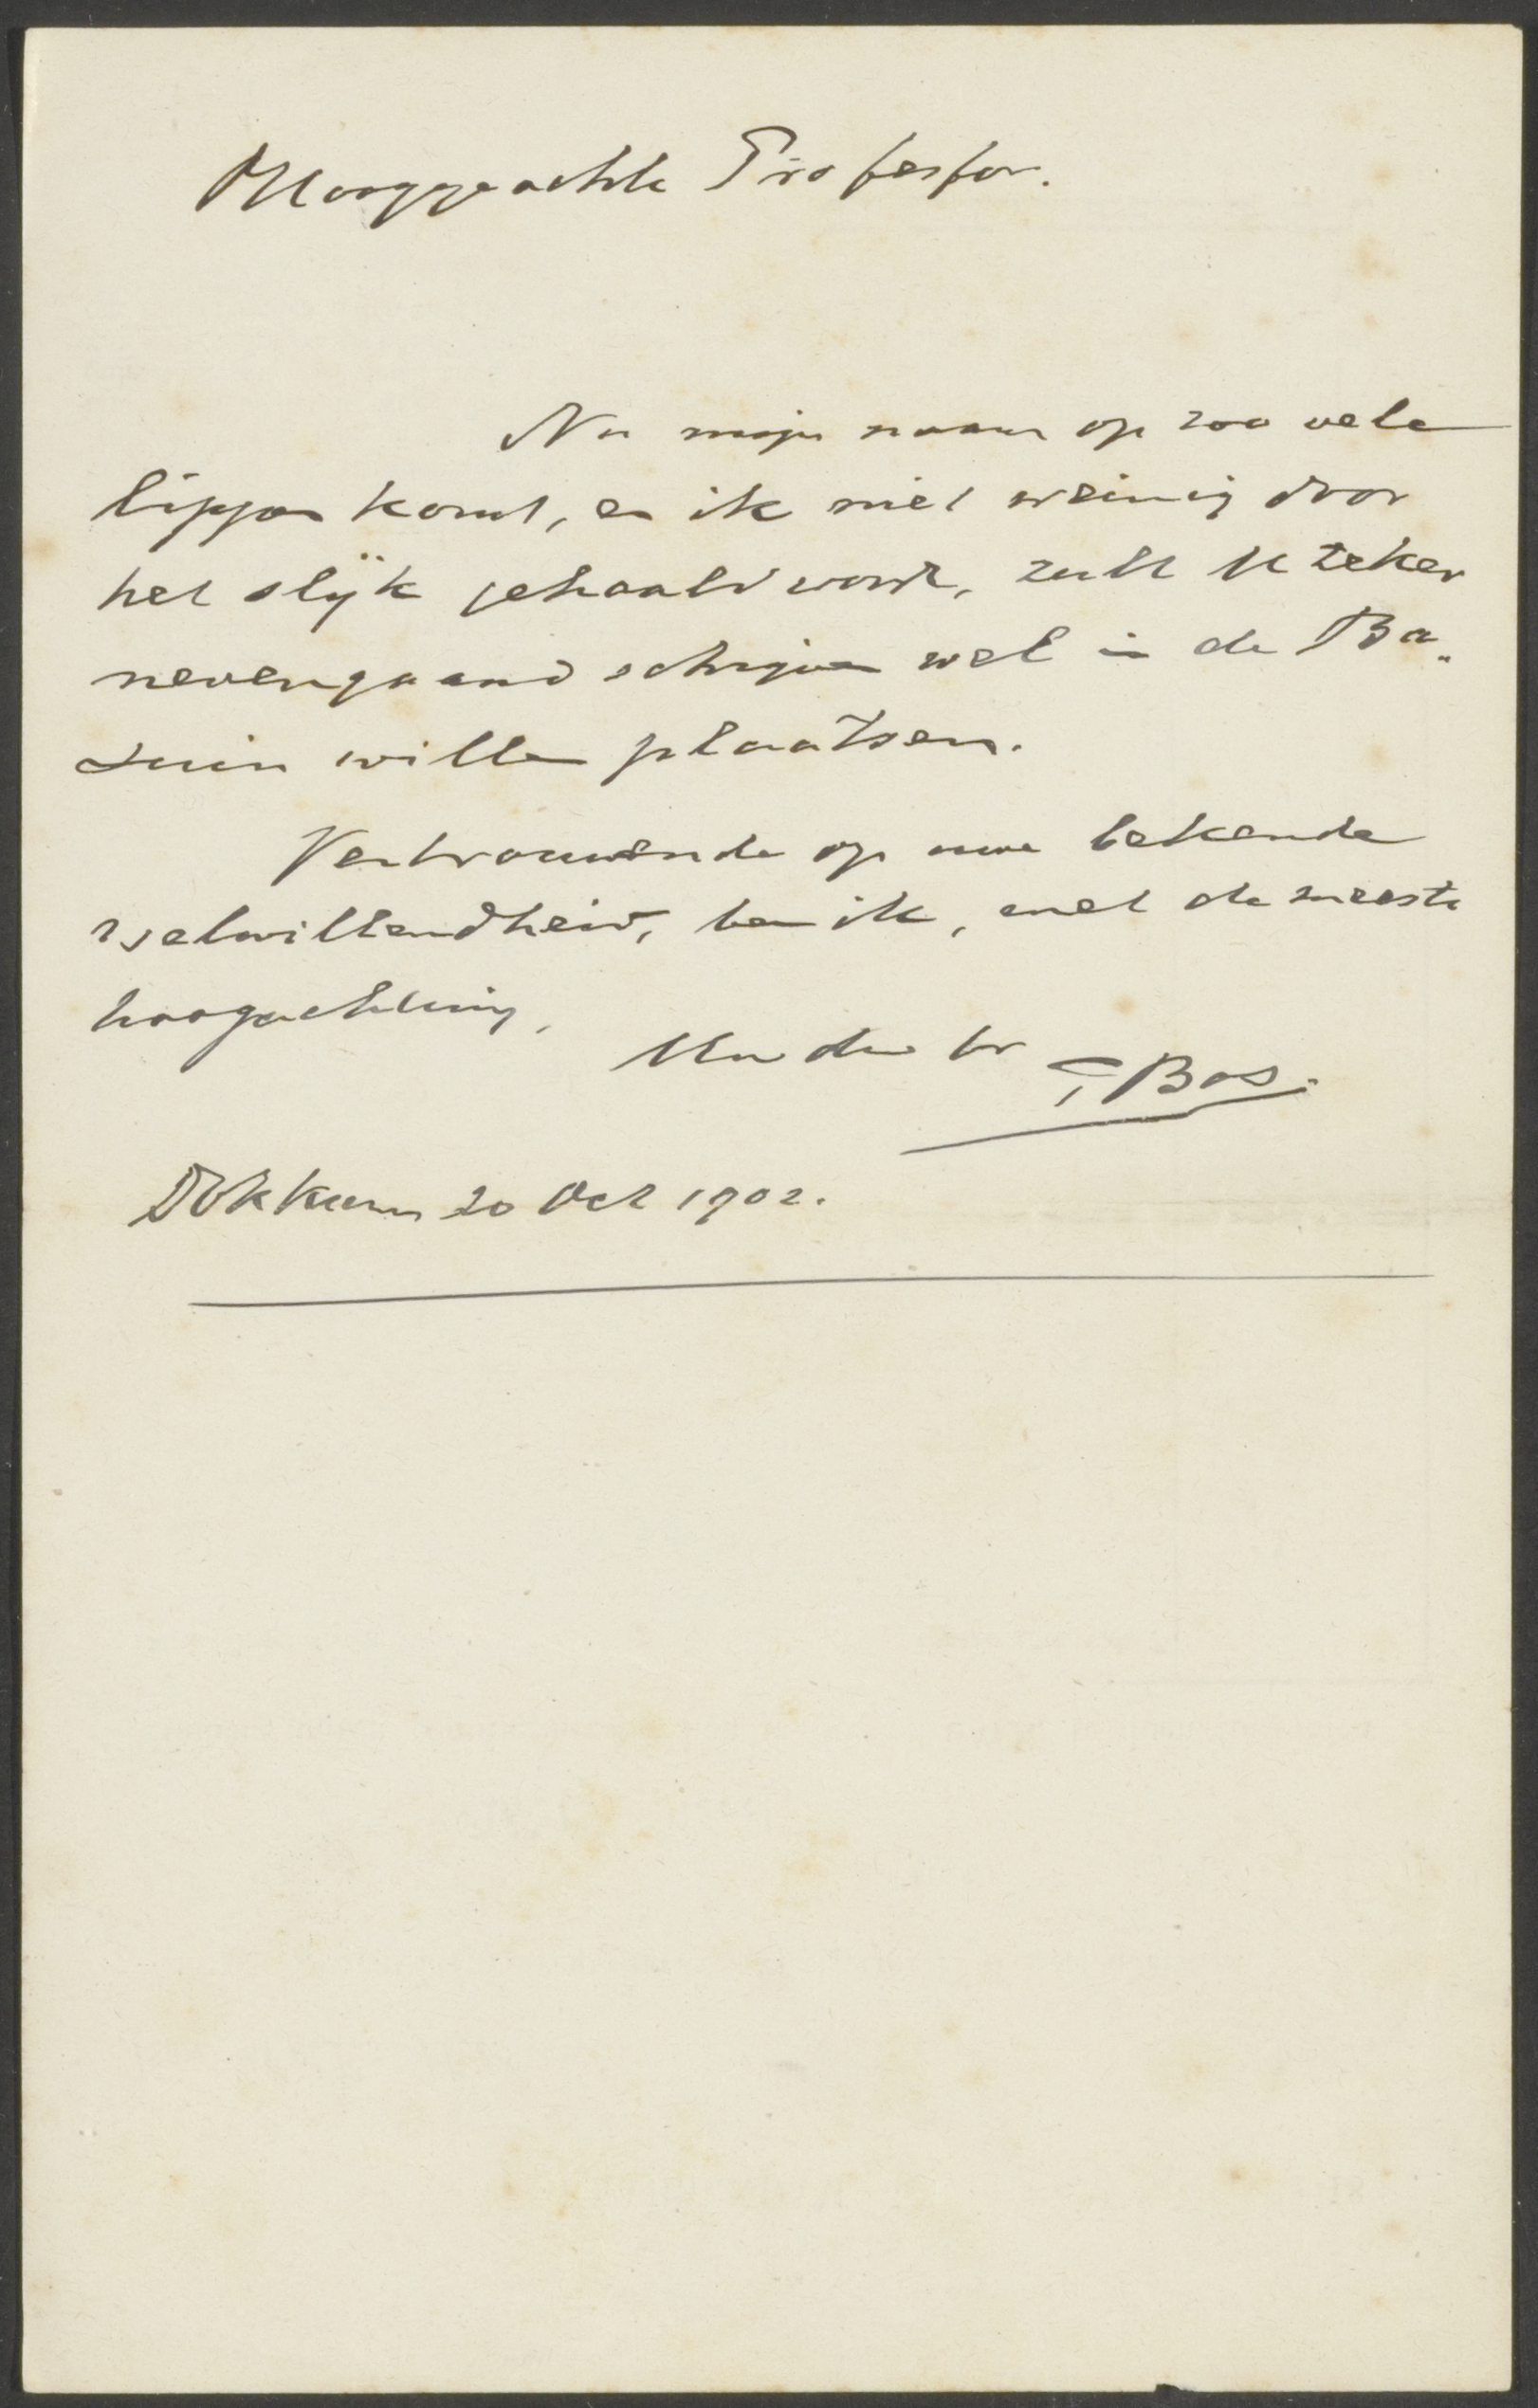 Hooggeachte Professor.
Nu mijn naam op zoo vele
lippen komt, en ik niet weinig door
het slijk gehaald word, zult U zeker
nevengaand schrijven wel in de Ba„
zuin willen plaatsen.
Vertrouwende op uwe bekende
welwillendheid, ben ik, met de meeste
hoogachting,
Uw dw br
T Bos.
Dokkum 20 Oct 1902.